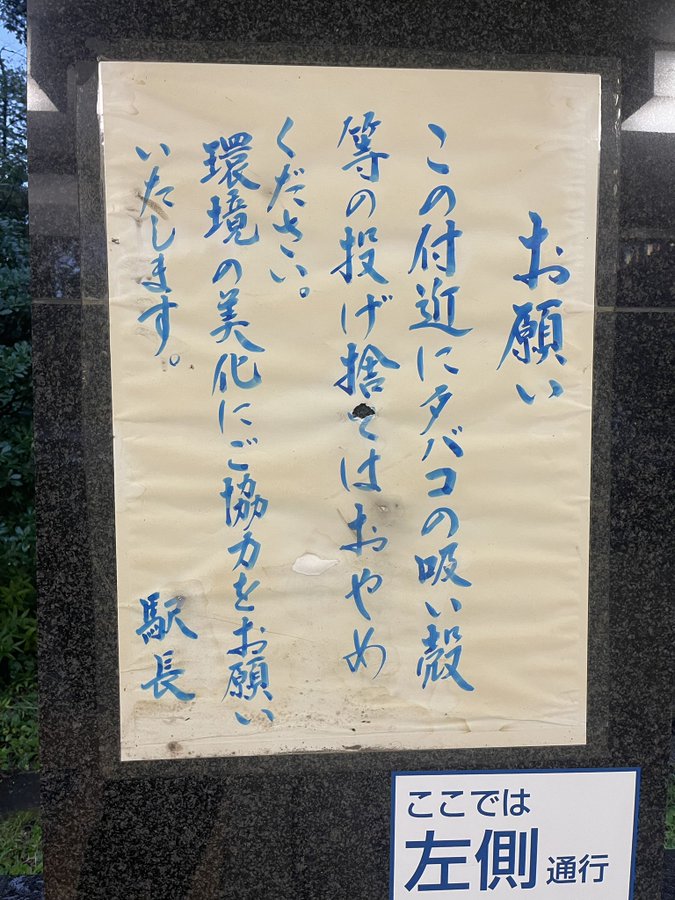 お願い
この付近にタバコの吸い殻
等の投げ捨てはおやめ
ください。
環境の美化にご協力をお願い
いたします。
駅長
ここでは
左側通行